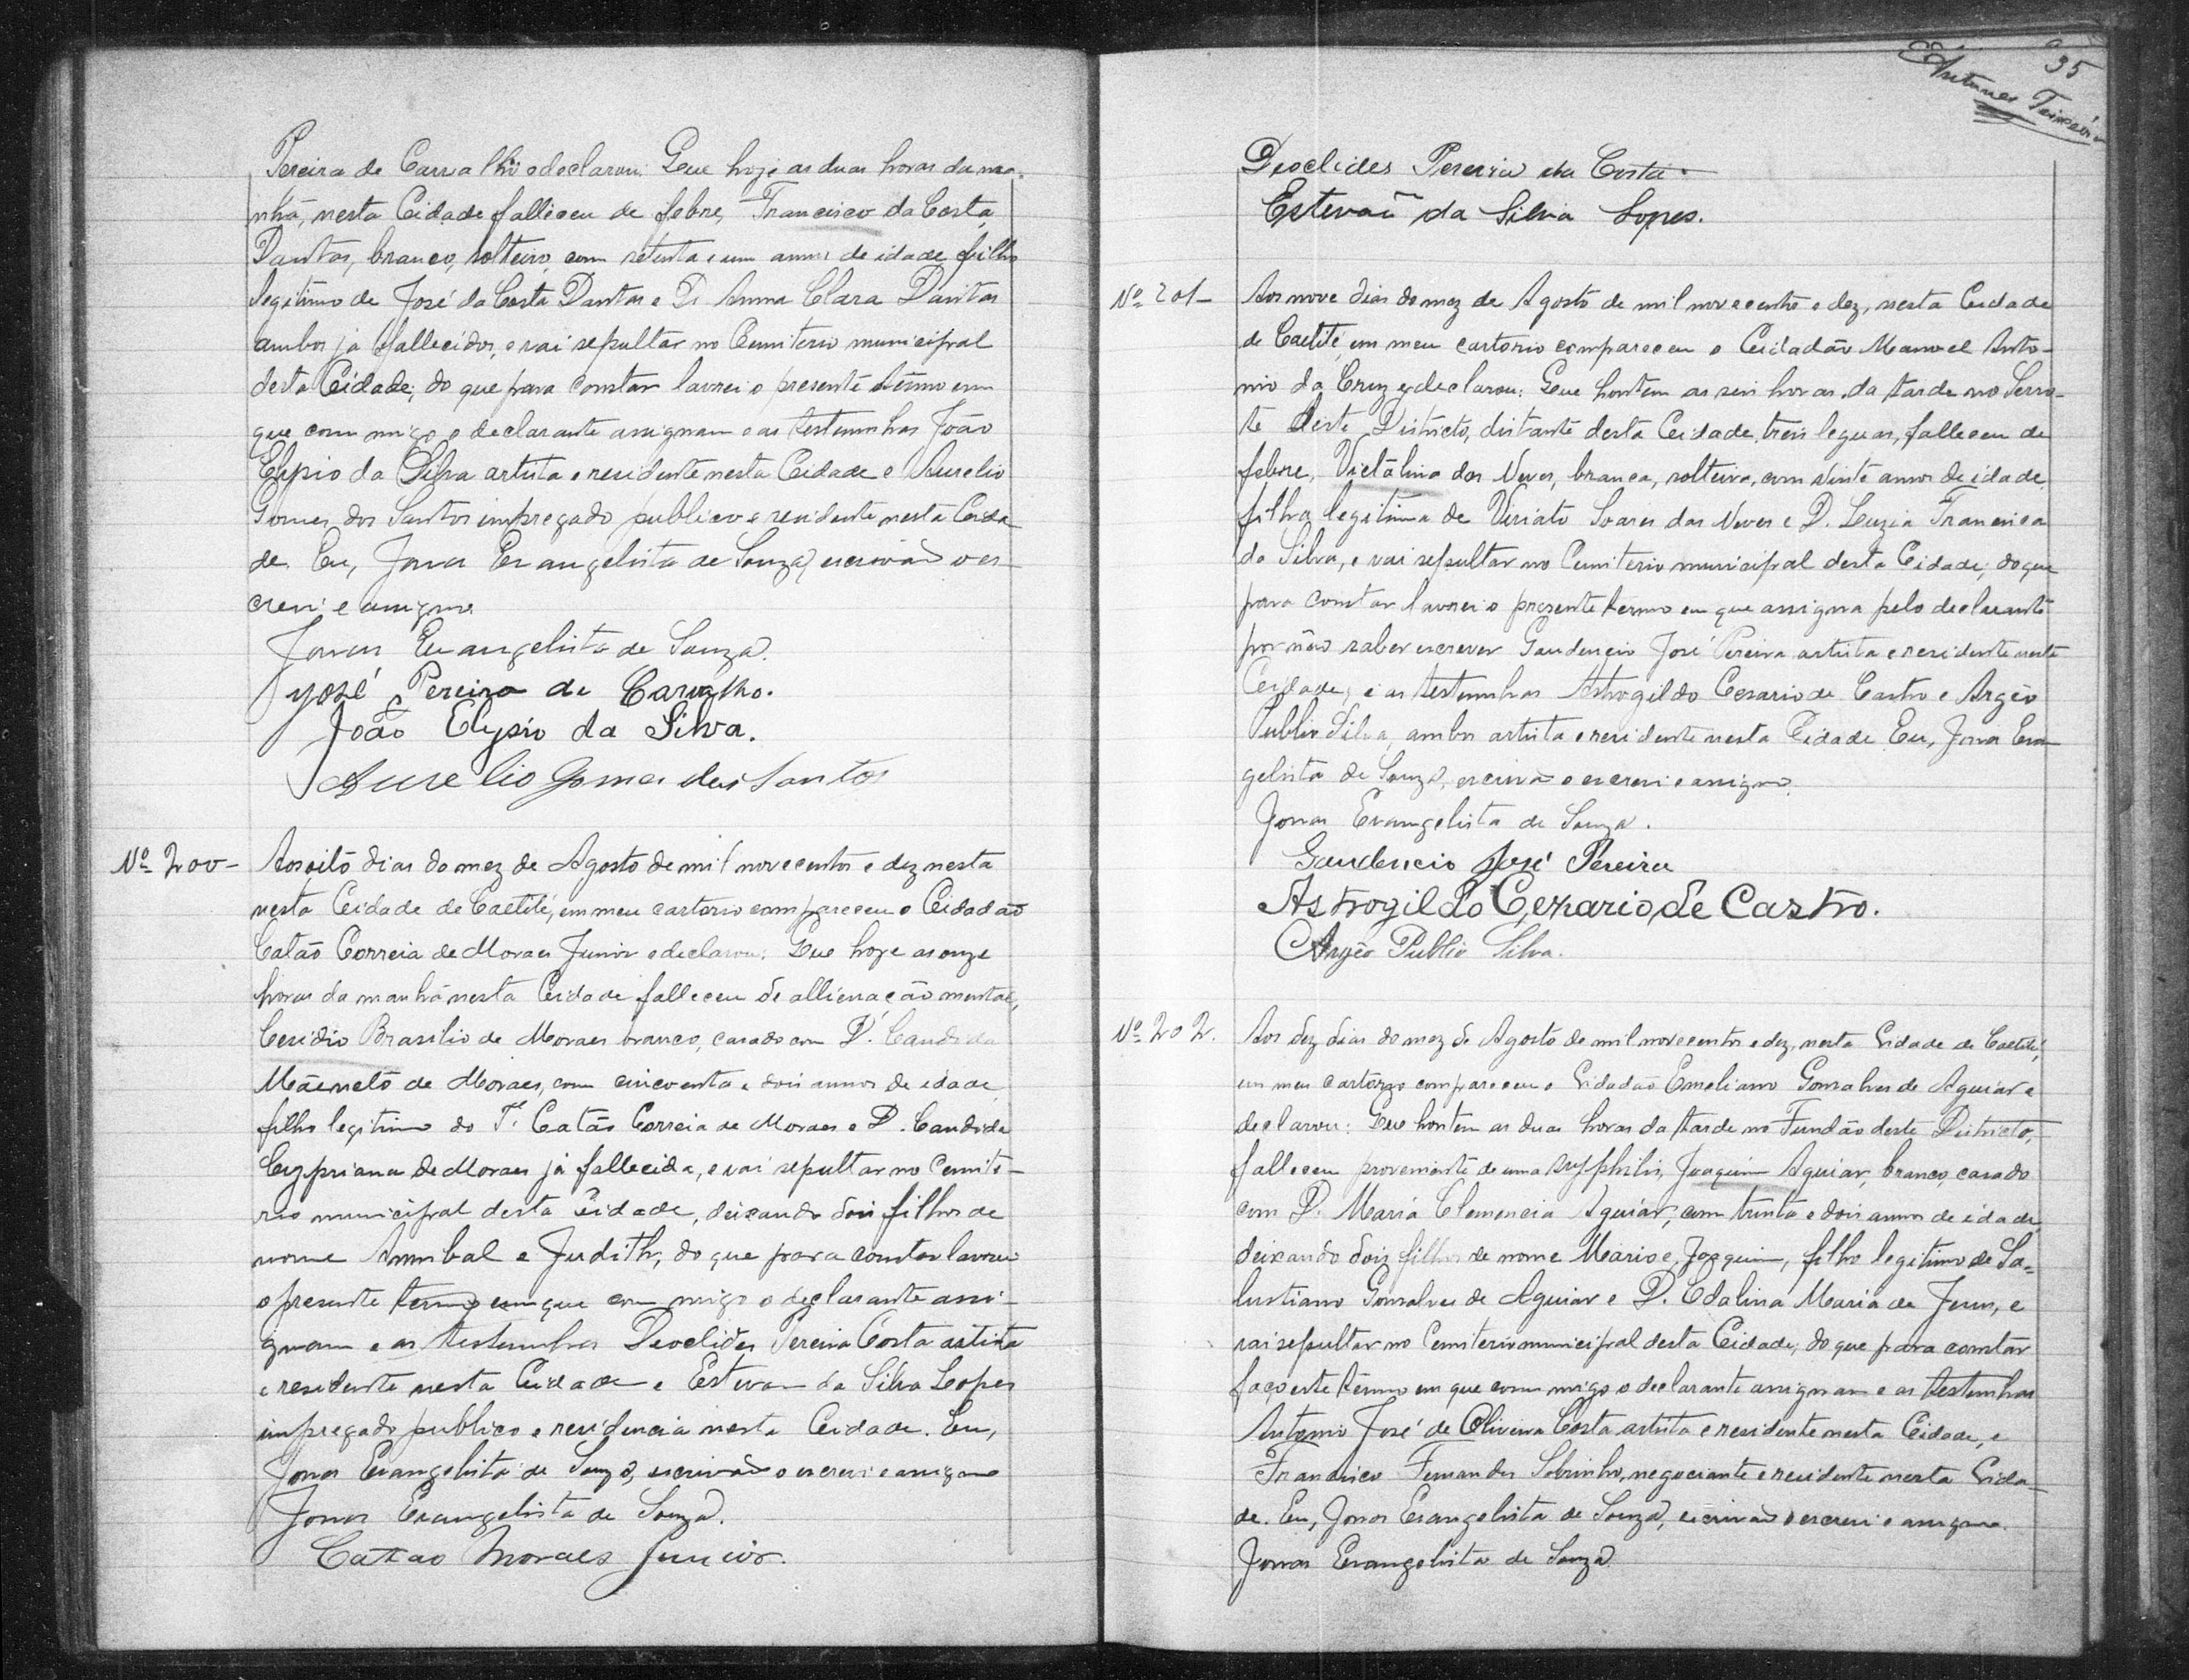 Pereira de Carvalho e declarou: Que hoje as duas horas da ma-
nhã, nesta Cidade falleceu de febre, Francisco da Costa
Dantas, branco, solteiro, com setenta e um annos de idade filho
legitimo de José da Costa Dantas e D. Anna Clara Dantas
ambos já fallecidos, e vai sepultar no Cemiterio municipal
desta Cidade; do que para constar lavrei o presente termo em
que com migo o declarante assignam e as testemunhas João
Elysio da Silva artista e residente nesta Cidade e Aurelio
Gomes dos Santos impregado publico e residente nesta Cida-
de. Eu, Jonas Evangelista de Souza, escrivão o es-
crevi e assigno
Jonas Evangelista de Souza.
José Pereira de Carvalho.
João Elysio da Silva.
Aurelio Gomes dos Santos
Nº 200- Aos oito dias do mez de Agosto de mil novecentos e dez nesta
nesta Cidade de Caetité, em meu cartorio compareceu o Cidadão
Catão Correia de Moraes Junior e declarou: Que hoje as onze
horas da manhã nesta Cidade falleceu de allienação mental,
Cesidio Brasilio de Moraes branco, casado com D. Candida
de Moraes, com cincoenta e dois annos de idade
filho legitimo do Tº Catão Correia de Moraes e D. Candida
Cypriana de Moraes já fallecida, e vai sepultar no Cemite-
rio municipal desta Cidade, deixando dois filhos de
nome Annibal e Judith; do que para constar lavrei
o presente termo em que com migo o declarante assi-
gnam e as testemunhas Deoclides Pereira Costa artista
e residente nesta Cidade e Estevam da Silva Lopes
impregado publico e residencia nesta Cidade. Eu,
Jonas Evangelista de Souza, escrivão o escrevi e assigno
Jonas Evangelista de Souza.
Catao Moraes Junior.
35
Antunes Teixeira
Deoclides Pereira da Costa.
Estevaõ da Silva Lopes.
Nº 201- Aos nove dias do mez de Agosto de mil novecentos e dez, nesta Cidade
de Caetité, em meu cartorio compareceu o Cidadão Manoel Anto-
nio da Cruz e declarou: Que hontem as seis horas da tarde no Serro-
te deste Districto, distante desta Cidade, tres leguas, falleceu de
febre, Victalina das Neves, branca, solteira, com vinte annos de idade
filha legitima de Viriato Soares das Neves e D. Luzia Francisca
da Silva, e vai sepultar no Cemiterio municipal desta Cidade; do que
para constar lavrei o presente termo em que assigna pelo declarante
por não saber escrever Gaudencio José Pereira artista e residente nesta
Cidade, e as testemunhas Astrogildo Cesario de Castro e Argêo
Publio Silva, ambos artista e residente nesta Cidade Eu, Jonas Evan
gelista de Souza, escrivão o escrevi e assigno.
Jonas Evangelista de Souza.
Gaudencio José Pereira
Astrogildo Cezario de Castro.
Argêo Publio Silva.
Nº 202. Aos dez dias do mez de Agosto de mil novecentos e dez, nesta Cidade de Caetité,
em meu cartorio compareceu o Cidadão Emeliano Gonsalves de Aguiar e
declarou: Que hontem as duas horas da tarde no Fundão deste Districto,
falleceu proveniente de uma syphilis, Joaquim Aguiar, branco, casado
com D. Maria Clemencia Aguiar, com trinta e dois annos de idade,
deixando dois filhos de nome Mario e Joaquim, filho legitimo de Sa-
lustiano Gonsalves de Aguiar e D. Edalina Maria de Jesus, e
vai sepultar no Cemiterio municipal desta Cidade; do que para constar
faço este termo em que com migo o declarante assignam e as testemunhas
Antonio José de Oliveira Costa artista e residente nesta Cidade, e
Francisco Fernandes Sobrinho, negociante e residente nesta Cida-
de. Eu, Jonas Evangelista de Souza, escrivão o escrevi e assigno.
Jonas Evangelista de Souza